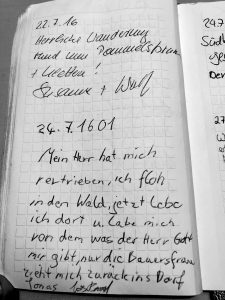 22.7.16
Herrliche Wanderung
rund um Rammelsbrunn
+ Wetter!
Susanne + Wolf
24.7.1601
Mein Herr hat mich
vertrieben, ich floh
in den Wald, jetzt lebe
ich dort u. labe mich
von dem was der Herr Gott
mir gibt, nur die Bauersfrau
zieht mich zurück ins Dorf
Jonas
24.7
Südl
Der
27